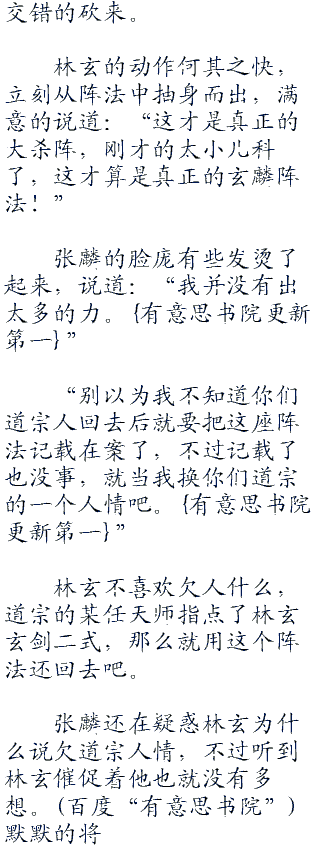 交错的砍来。
林玄的动作何其之快，
立刻从阵法中抽身而出，满
意的说道：“这才是真正的
大杀阵，刚才的太小儿科
了，这才算是真正的玄麟阵
法！”
张麟的脸庞有些发烫了
起来，说道：“我并没有出
太多的力。{有意思书院更新
第一}”
“别以为我不知道你们
道宗人回去后就要把这座阵
法记载在案了，不过记载了
也没事，就当我换你们道宗
的一个人情吧。{有意思书院
更新第一}”
林玄不喜欢欠人什么，
道宗的某任天师指点了林玄
玄剑二式，那么就用这个阵
法还回去吧。
张麟还在疑惑林玄为什
么说欠道宗人情，不过听到
林玄催促着他也就没有多
想。(百度“有意思书院”)
默默的将